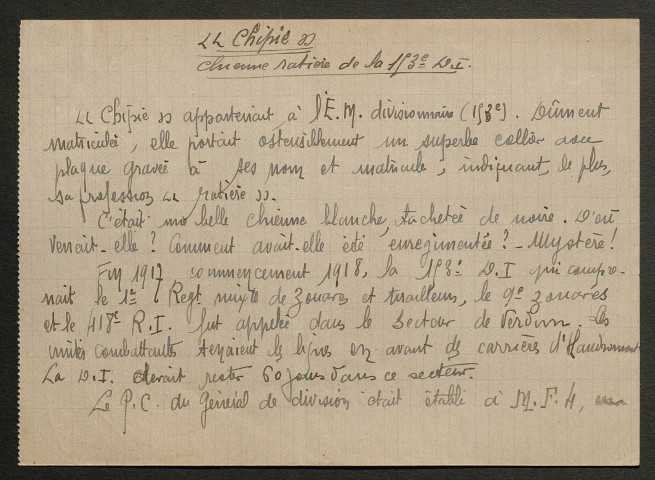 « Chipie »
chienne ratière de la 153e D.I.
« Chipie » appartenait à l'E.M. divisionnaire (153e). Dûment
matriculée, elle portait ostensiblement un superbe collier avec
plaque gravée à ses nom et matricule, indiquant, de plus,
sa profession « ratière ».
C'était une belle chienne blanche, tachetée de noire. D'où
venait-elle ? Comment avait-elle été enrégimentée ? - Mystère !
Fin 1917 commencement 1918, la 153e D.I qui compre-
nait le 1er Regt mixte de Zouaves et tirailleurs, le 9e zouaves
et le 418e R.I. fut appelée dans le secteur de Verdun. Les
unités combattantes tenaient les lignes en avant des carrières d'Haudromont
La D.I. devait rester 60 jours dans ce secteur.
Le P.C. du général de division était établi à M.F.4,